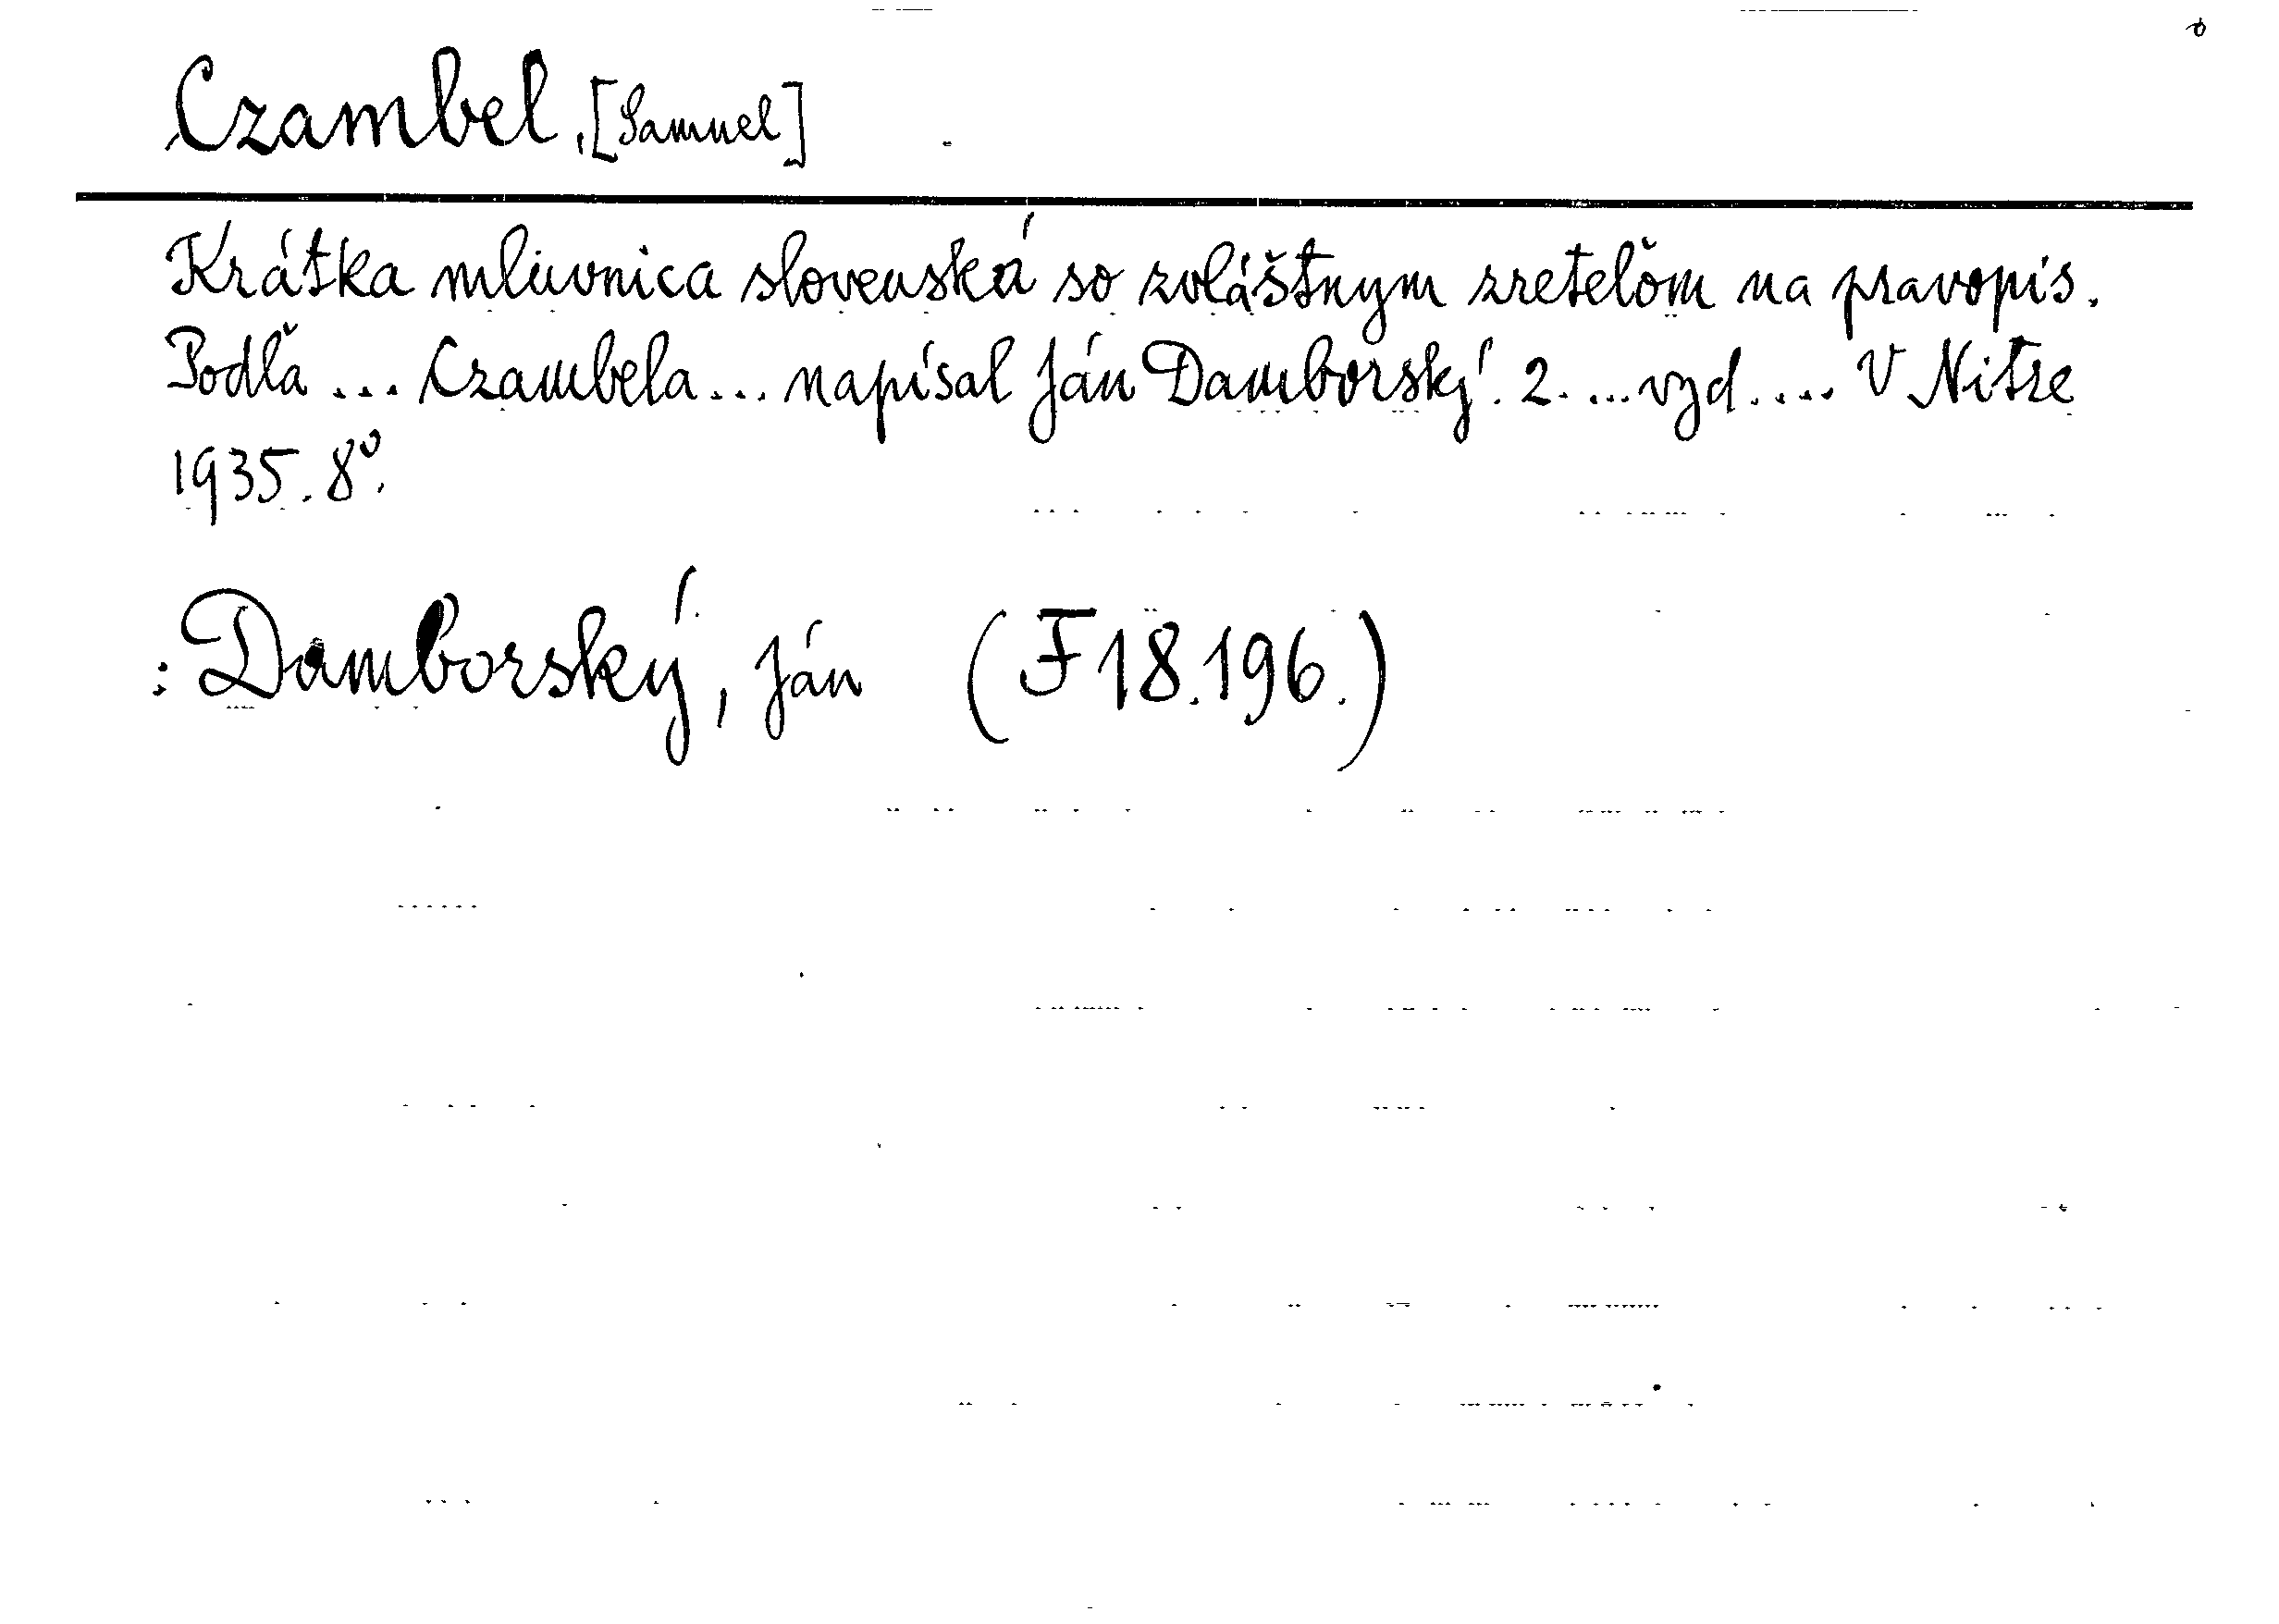 Czambel, [Samuel]
Krátka mluvnica slovenská so zvláštnym zreteľom na pravopis.
Podľa ... Czambela ... napísal Ján Damborský. 2. ... vyd. ... V Nitre
1935. 8°.
: Damborský, Ján (F 18.196.)